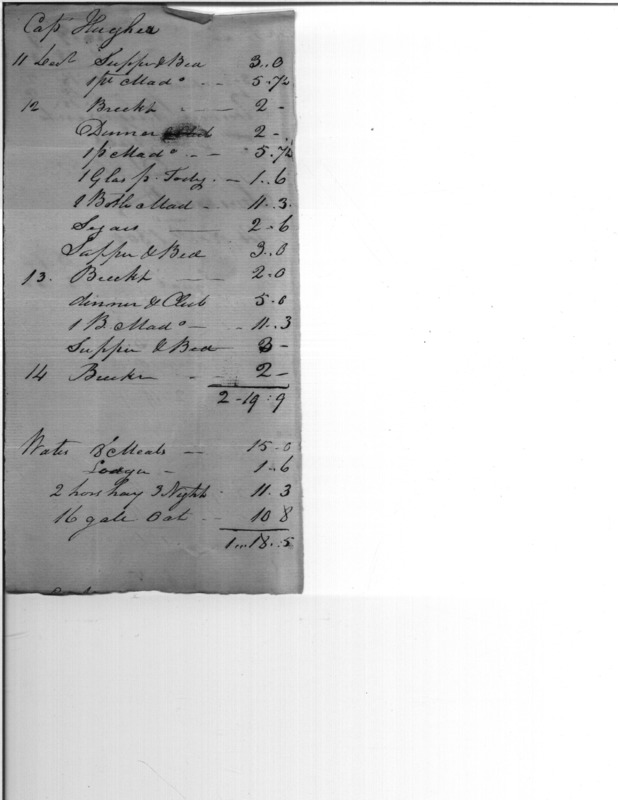 Cap Hughes
11 Supper & Bed 3..0
1 pt Mado - - 5..7½
12 Breckt - — 2 -
Dinner 2 -
1 pt Mado - - 5..7½
1 Glas p. Tody . — 1..6
1 Bottle Mad - 11..3.
Segars — 2..6
Supper & Bed 3..0
13. Breckt — 2..0
dinner & Club 5..0
1 B Mado — - 11..3
Supper & Bed — 3 -
14 - — 2 -
2 - 19 : 9
8 Meals — 15-0
- 1..6
2 hors hay 3 Night . 11. 3
16 gals Oat - - 10 8
1...18..5